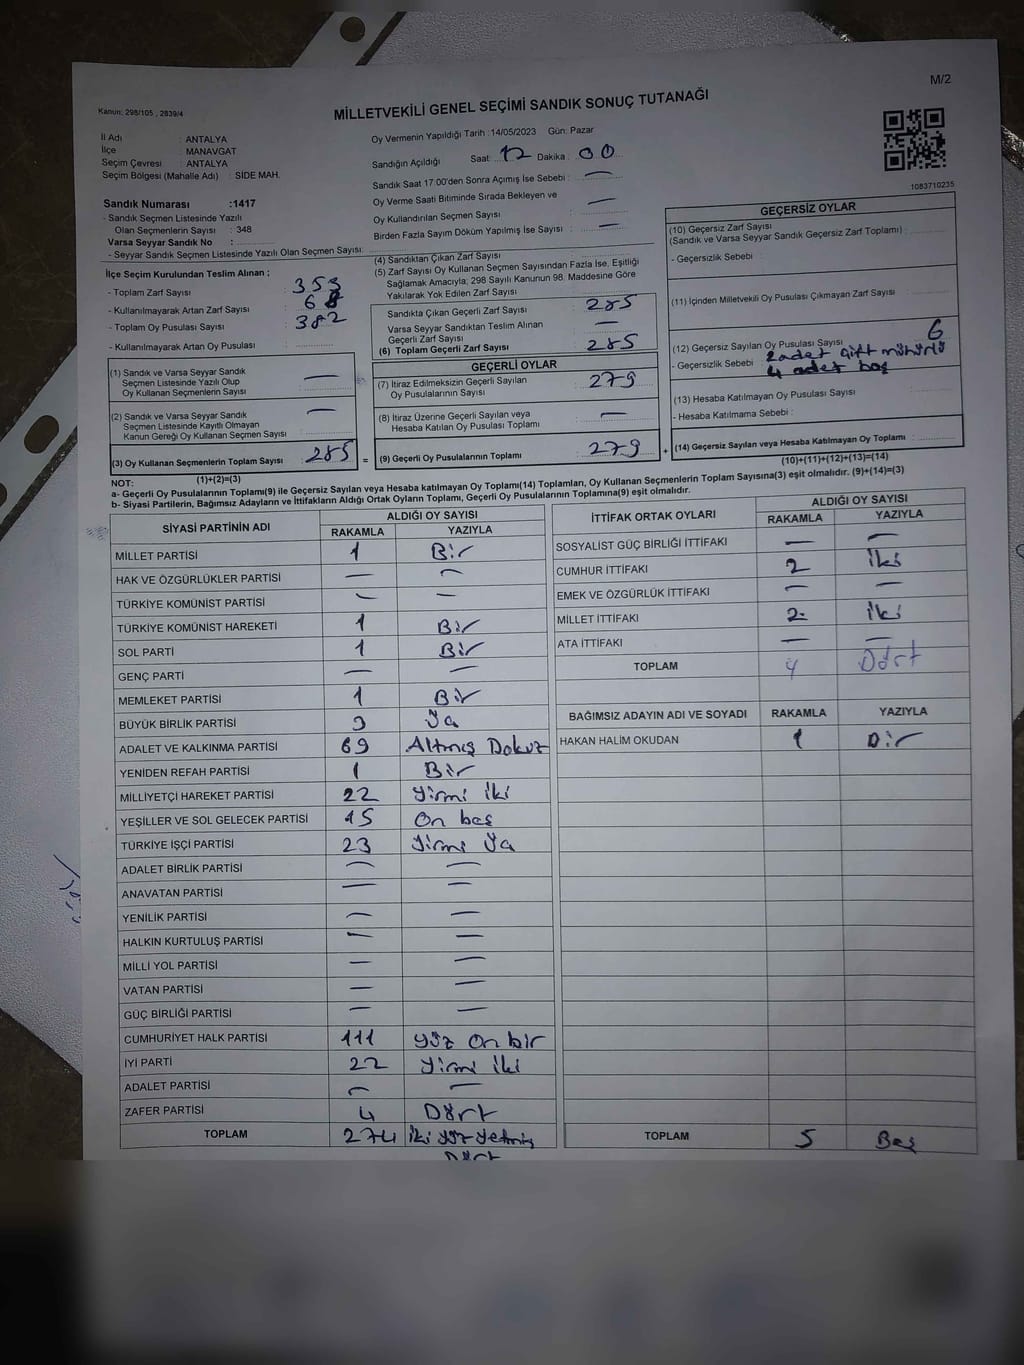 M/2
Kanun: 298/105 , 2839/4
MİLLETVEKİLİ GENEL SEÇİMİ SANDIK SONUÇ TUTANAĞI
İl Adı : ANTALYA
İlçe : MANAVGAT
Seçim Çevresi : ANTALYA
Seçim Bölgesi (Mahalle Adı) : SİDE MAH.
Sandık Numarası :1417
- Sandık Seçmen Listesinde Yazılı
Olan Seçmenlerin Sayısı : 348
Varsa Seyyar Sandık No :
- Seyyar Sandık Seçmen Listesinde Yazılı Olan Seçmen Sayısı:
İlçe Seçim Kurulundan Teslim Alınan ;
- Toplam Zarf Sayısı : 353
- Kullanılmayarak Artan Zarf Sayısı : 68
- Toplam Oy Pusulası Sayısı : 382
- Kullanılmayarak Artan Oy Pusulası :
(1) Sandık ve Varsa Seyyar Sandık
Seçmen Listesinde Yazılı Olup
Oy Kullanan Seçmenlerin Sayısı : —
(2) Sandık ve Varsa Seyyar Sandık
Seçmen Listesinde Kayıtlı Olmayan
Kanun Gereği Oy Kullanan Seçmen Sayısı : —
(3) Oy Kullanan Seçmenlerin Toplam Sayısı : 285
(1)+(2)=(3)
Oy Vermenin Yapıldığı Tarih :14/05/2023 Gün: Pazar
Sandığın Açıldığı Saat: 12 Dakika : 00
Sandık Saat 17:00'den Sonra Açımış İse Sebebi : —
Oy Verme Saati Bitiminde Sırada Bekleyen ve
Oy Kullandırılan Seçmen Sayısı : —
Birden Fazla Sayım Döküm Yapılmış İse Sayısı : —
(4) Sandıktan Çıkan Zarf Sayısı :
(5) Zarf Sayısı Oy Kullanan Seçmen Sayısından Fazla İse, Eşitliği
Sağlamak Amacıyla; 298 Sayılı Kanunun 98. Maddesine Göre
Yakılarak Yok Edilen Zarf Sayısı :
Sandıkta Çıkan Geçerli Zarf Sayısı : 285
Varsa Seyyar Sandıktan Teslim Alınan
Geçerli Zarf Sayısı : —
(6) Toplam Geçerli Zarf Sayısı : 285
GEÇERLİ OYLAR
(7) İtiraz Edilmeksizin Geçerli Sayılan
Oy Pusulalarının Sayısı : 279
(8) İtiraz Üzerine Geçerli Sayılan veya
Hesaba Katılan Oy Pusulası Toplamı : —
= (9) Geçerli Oy Pusulalarının Toplamı : 279
1083710235
GEÇERSİZ OYLAR
(10) Geçersiz Zarf Sayısı
(Sandık ve Varsa Seyyar Sandık Geçersiz Zarf Toplamı) :
- Geçersizlik Sebebi :
(11) İçinden Milletvekili Oy Pusulası Çıkmayan Zarf Sayısı :
(12) Geçersiz Sayılan Oy Pusulası Sayısı : 6
- Geçersizlik Sebebi : 2 adet çift mühürlü
4 adet boş
(13) Hesaba Katılmayan Oy Pusulası Sayısı :
- Hesaba Katılmama Sebebi :
+ (14) Geçersiz Sayılan veya Hesaba Katılmayan Oy Toplamı :
(10)+(11)+(12)+(13)=(14)
NOT:
a- Geçerli Oy Pusulalarının Toplamı(9) ile Geçersiz Sayılan veya Hesaba katılmayan Oy Toplamı(14) Toplamları, Oy Kullanan Seçmenlerin Toplam Sayısına(3) eşit olmalıdır. (9)+(14)=(3)
b- Siyasi Partilerin, Bağımsız Adayların ve İttifakların Aldığı Ortak Oyların Toplamı, Geçerli Oy Pusulalarının Toplamına(9) eşit olmalıdır.
SİYASİ PARTİNİN ADI ALDIĞI OY SAYISI
RAKAMLA YAZIYLA
MİLLET PARTİSİ 1 Bir
HAK VE ÖZGÜRLÜKLER PARTİSİ — —
TÜRKİYE KOMÜNİST PARTİSİ — —
TÜRKİYE KOMÜNİST HAREKETİ 1 Bir
SOL PARTİ 1 Bir
GENÇ PARTİ — —
MEMLEKET PARTİSİ 1 Bir
BÜYÜK BİRLİK PARTİSİ 3 Üç
ADALET VE KALKINMA PARTİSİ 69 Altmış Dokuz
YENİDEN REFAH PARTİSİ 1 Bir
MİLLİYETÇİ HAREKET PARTİSİ 22 Yirmi İki
YEŞİLLER VE SOL GELECEK PARTİSİ 15 On beş
TÜRKİYE İŞÇİ PARTİSİ 23 Yirmi Üç
ADALET BİRLİK PARTİSİ — —
ANAVATAN PARTİSİ — —
YENİLİK PARTİSİ — —
HALKIN KURTULUŞ PARTİSİ — —
MİLLİ YOL PARTİSİ — —
VATAN PARTİSİ — —
GÜÇ BİRLİĞİ PARTİSİ — —
CUMHURİYET HALK PARTİSİ 111 Yüz On bir
İYİ PARTİ 22 Yirmi İki
ADALET PARTİSİ — —
ZAFER PARTİSİ 4 Dört
TOPLAM 274 İki yüz yetmiş
Dört
İTTİFAK ORTAK OYLARI ALDIĞI OY SAYISI
RAKAMLA YAZIYLA
SOSYALİST GÜÇ BİRLİĞİ İTTİFAKI — —
CUMHUR İTTİFAKI 2 İki
EMEK VE ÖZGÜRLÜK İTTİFAKI — —
MİLLET İTTİFAKI 2 İki
ATA İTTİFAKI — —
TOPLAM 4 Dört
BAĞIMSIZ ADAYIN ADI VE SOYADI RAKAMLA YAZIYLA
HAKAN HALİM OKUDAN 1 Bir
TOPLAM 5 Beş